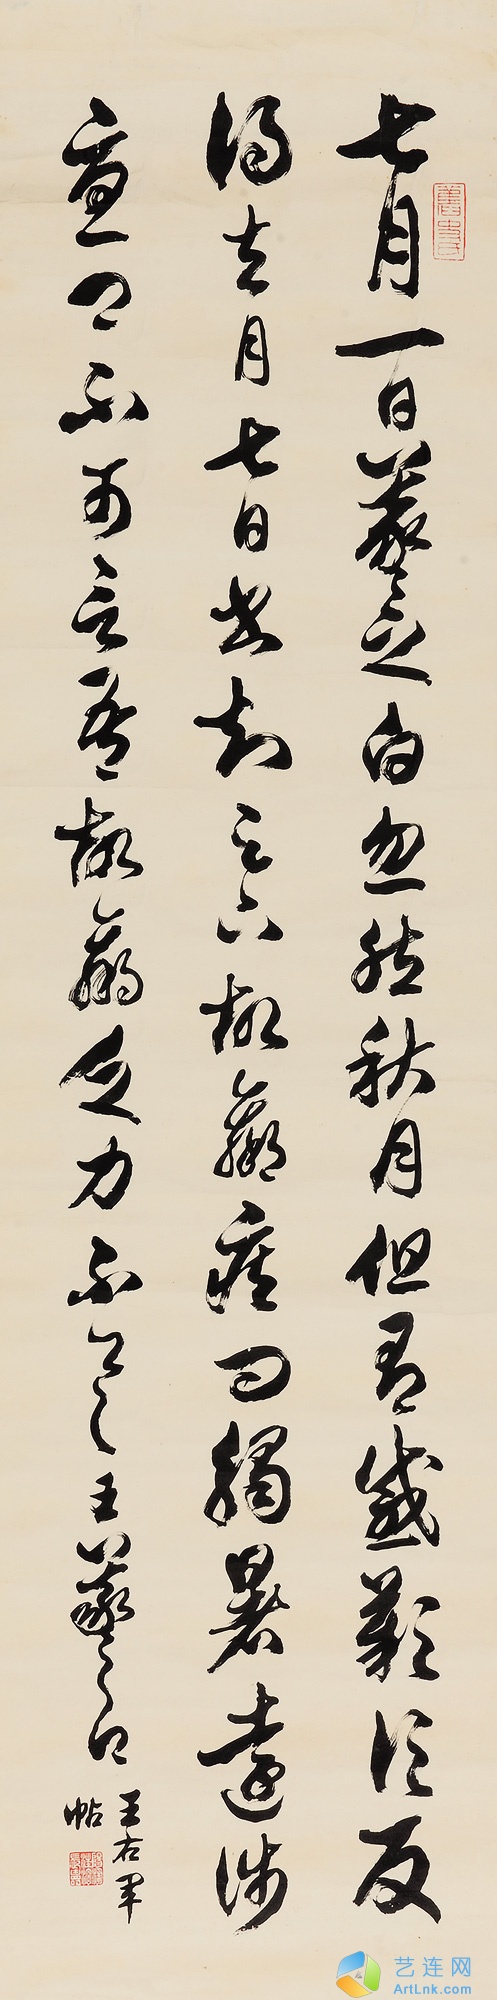 七月一日羲之白忽然秋月但有感歎信反
得去月七日書知足下故羸疾問觸暑遠涉
憂卿不可言吾故羸乏力不具王羲之白
王右軍
帖
舊史氏
艺连网
ArtLnk.com